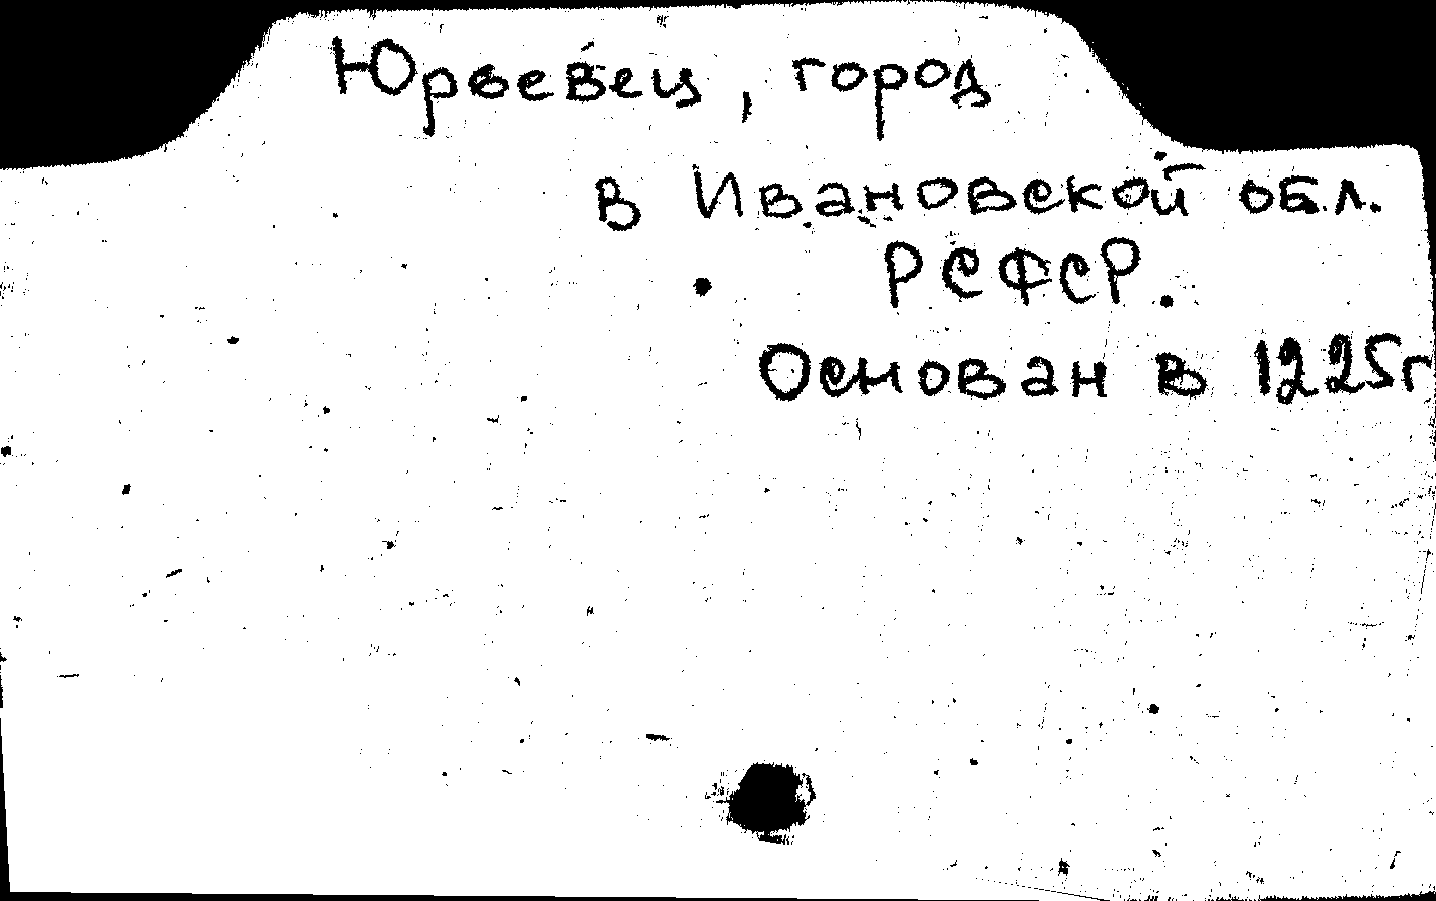 Юрьевец, город
в Ивановской обл.
РСФСР.
Основан в 1225г